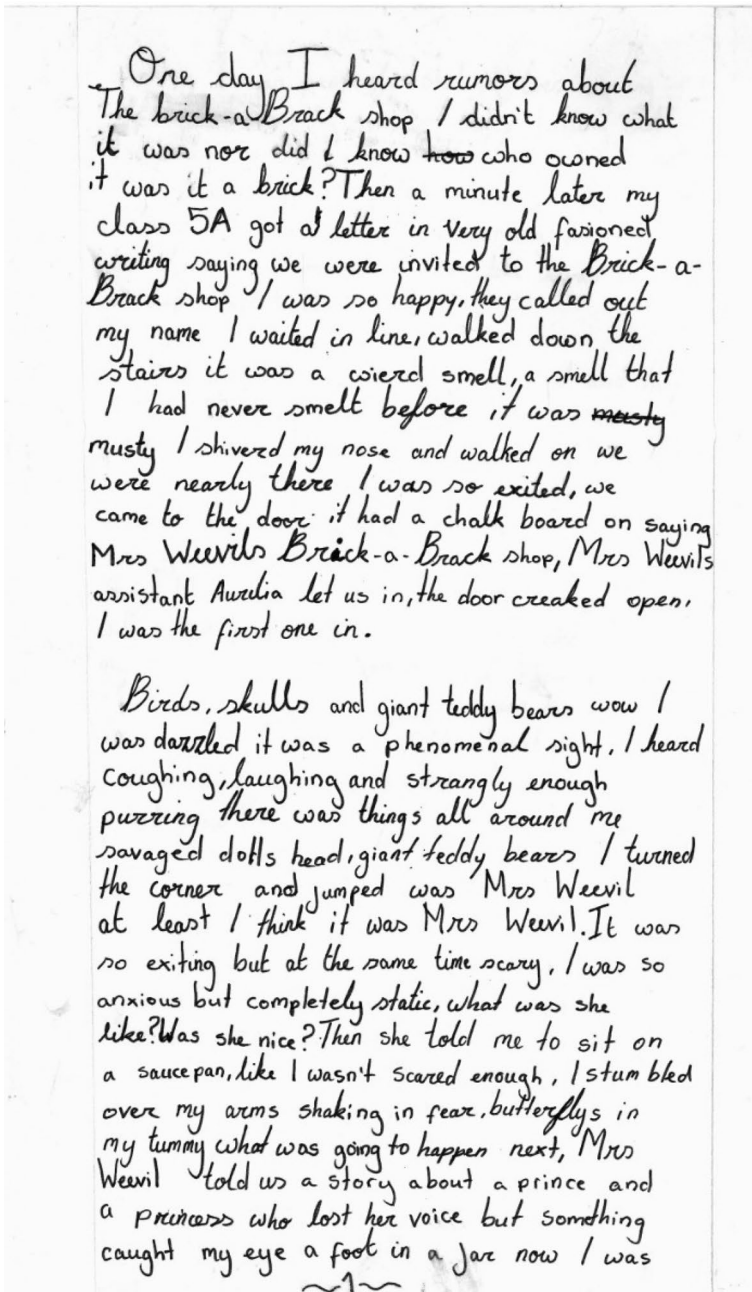 One day I heard rumors about
The brick-a-Brack shop I didn't know what
it was nor did I know how who owned
it was it a brick? Then a minute later my
class 5A got a letter in very old fasioned
writing saying we were invited to the Brick-a-
Brack shop I was so happy, they called out
my name I waited in line, walked down the
stairs it was a wierd smell, a smell that
I had never smelt before it was musty
musty I shiverd my nose and walked on we
were nearly there I was so exited, we
came to the door it had a chalk board on saying
Mrs Weevils Brick-a-Brack shop, Mrs Weevils
assistant Aurelia let us in, the door creaked open,
I was the first one in.
Birds, skulls and giant teddy bears wow I
was dazzled it was a phenomenal sight, I heard
coughing, laughing and strangly enough
purring there was things all around me
savaged dolls head, giant teddy bears I turned
the corner and jumped was Mrs Weevil
at least I think it was Mrs Weevil. It was
so exiting but at the same time scary, I was so
anxious but completely static, what was she
like? Was she nice? Then she told me to sit on
a saucepan, like I wasn't scared enough, I stumbled
over my arms shaking in fear, butterflys in
my tummy what was going to happen next, Mrs
Weevil told us a story about a prince and
a princess who lost her voice but something
caught my eye a foot in a jar now I was
~1~